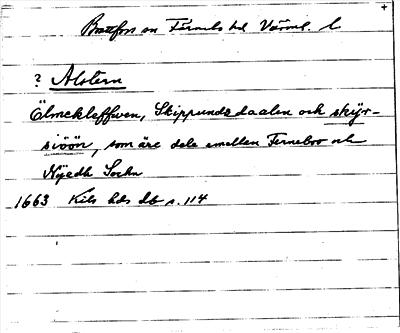 +
Brattfors sn Färnebo hd Värml. l.
? Alstern
Ölmekleffwen, Skippundzdaalen och skÿr-
siöön, som äre dela emellan Ferneboo och
Nÿedh Sockn
1663 Kils hds db s. 114